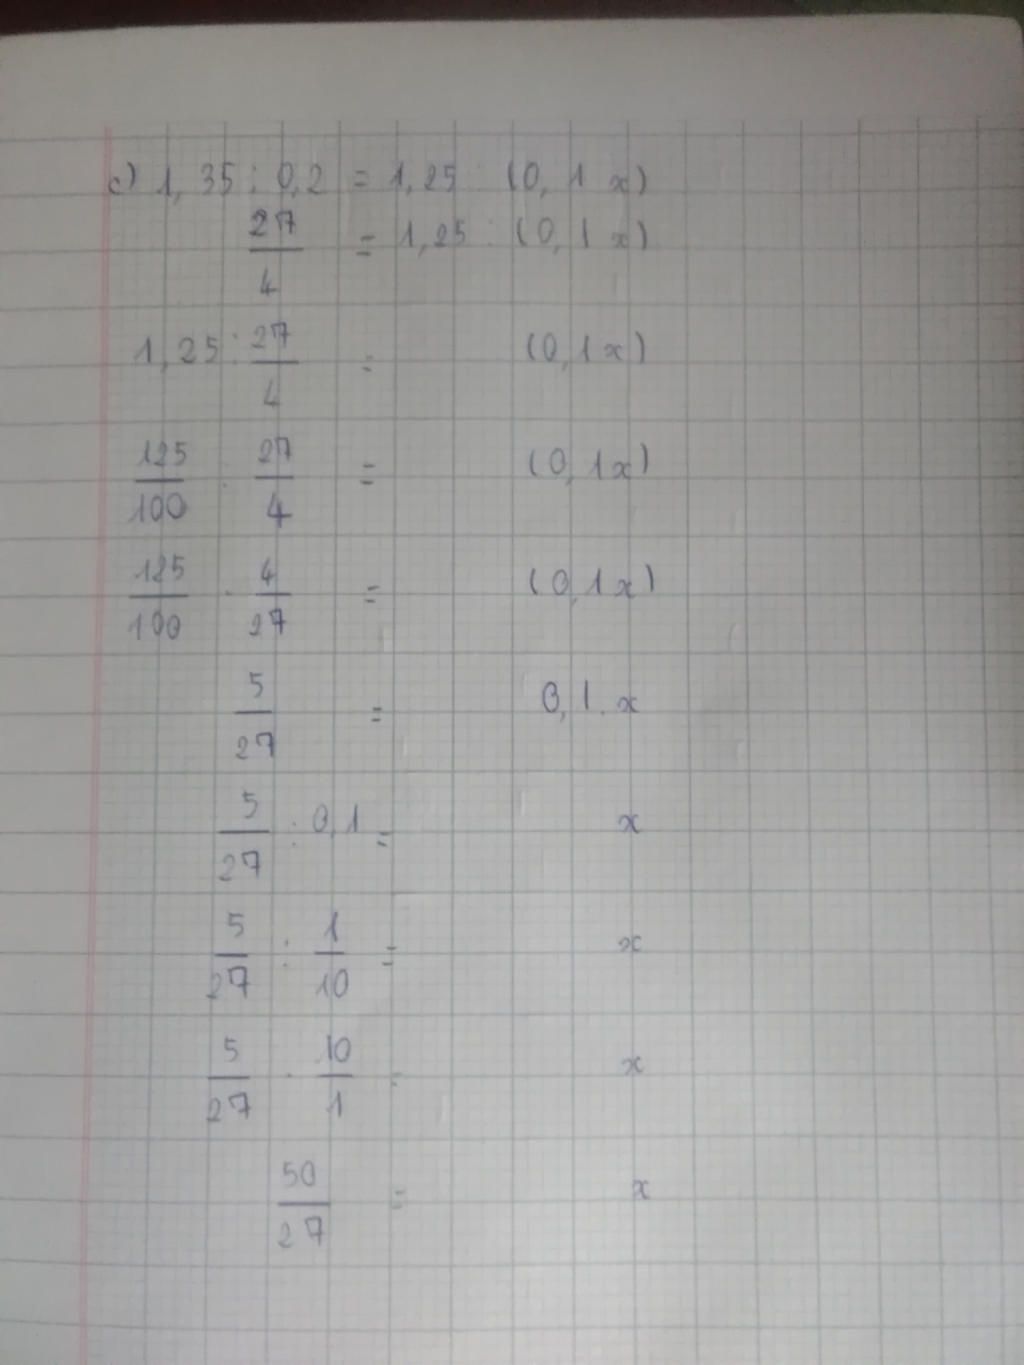 c) 1,35 : 0,2 = 1,25 : (0,1 x)
27/4 = 1,25 : (0,1 x)
1,25 : 27/4 = (0,1 x)
125/100 : 27/4 = (0,1x)
125/100 . 4/27 = (0,1x)
5/27 = 0,1 . x
5/27 : 0,1 = x
5/27 : 1/10 = x
5/27 . 10/1 = x
50/27 = x